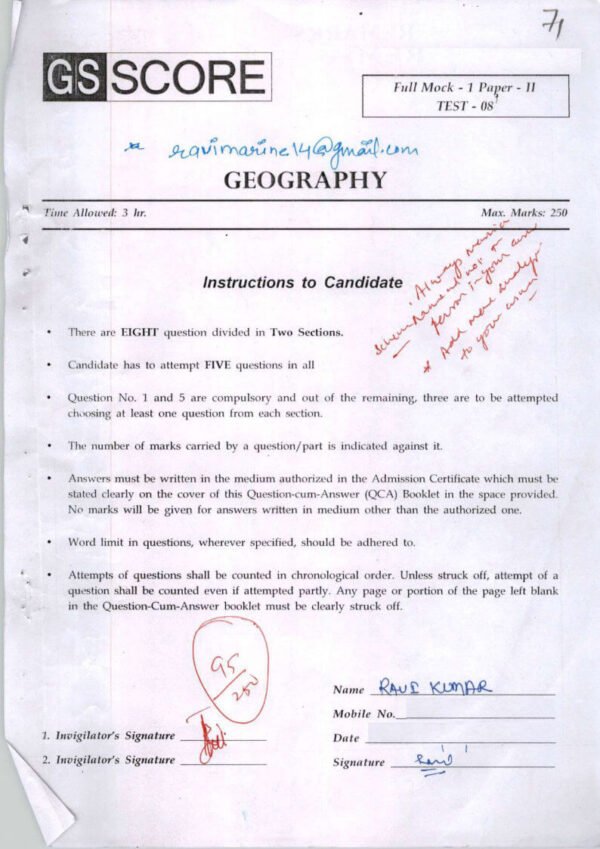 71
GS SCORE
Full Mock - 1 Paper - II
TEST - 08
ravimarine14@gmail.com
GEOGRAPHY
Time Allowed: 3 hr.
Max. Marks: 250
Instructions to Candidate
Always
name
term in your
* Add more
to your
• There are EIGHT question divided in Two Sections.
• Candidate has to attempt FIVE questions in all
• Question No. 1 and 5 are compulsory and out of the remaining, three are to be attempted
choosing at least one question from each section.
• The number of marks carried by a question/part is indicated against it.
• Answers must be written in the medium authorized in the Admission Certificate which must be
stated clearly on the cover of this Question-cum-Answer (QCA) Booklet in the space provided.
No marks will be given for answers written in medium other than the authorized one.
• Word limit in questions, wherever specified, should be adhered to.
• Attempts of questions shall be counted in chronological order. Unless struck off, attempt of a
question shall be counted even if attempted partly. Any page or portion of the page left blank
in the Question-Cum-Answer booklet must be clearly struck off.
95
250
Name RAVI KUMAR
Mobile No.
1. Invigilator's Signature
Date
2. Invigilator's Signature
Signature Ravi